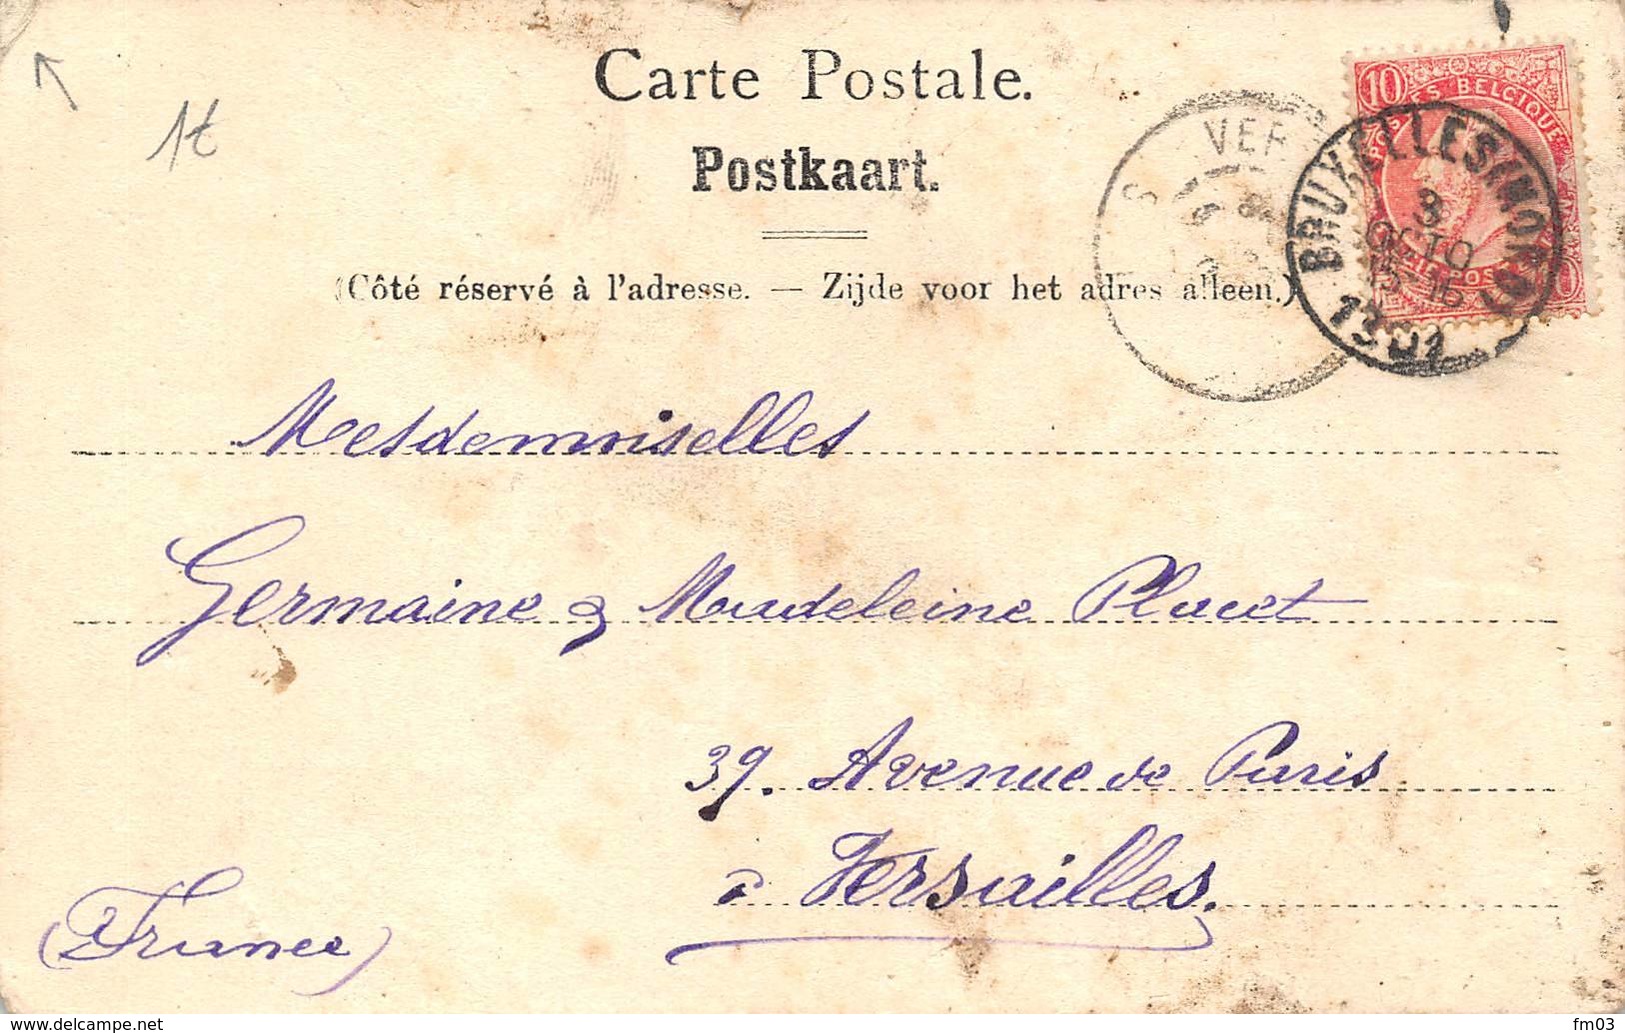 Carte Postale.
Postkaart.
(Côté réservé à l'adresse. — Zijde voor het adres alleen.)
1t
10
POSTES BELGIQUE
BRUXELLES (NORD)
8
OCTO
15-16
1901
VER
S
Mesdemoiselles
Germaine & Madeleine Placet
39. Avenue de Paris
à Versailles.
(France)
www.delcampe.net
fm03